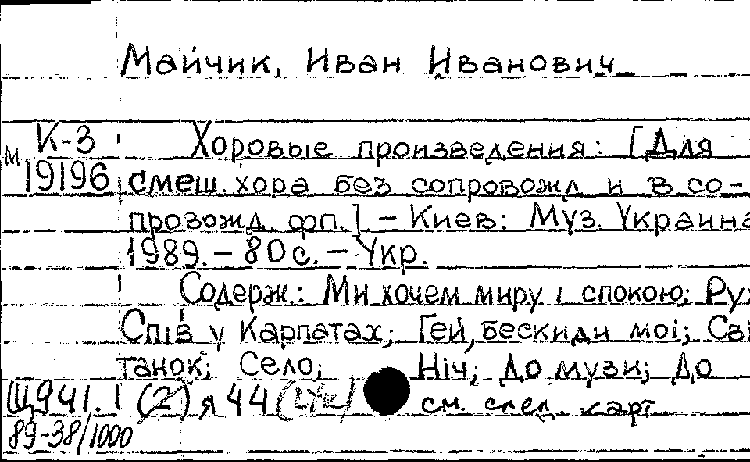 Майчик, Иван Иванович
М К-3 Хоровые произведения: [Для
19196 смеш. хора без сопровожд и в со-
провожд. фп.] – Киев: Муз. Украина
1989. – 80 с. – Укр.
Содерж.: Ми хочем миру і спокою; Ру
Спів у Карпатах; Гей, бескиди мої; Сві
танок; Село; Ніч; До музи; До
Щ941.1 (2) я 44 см. след. карт
89-38/1000